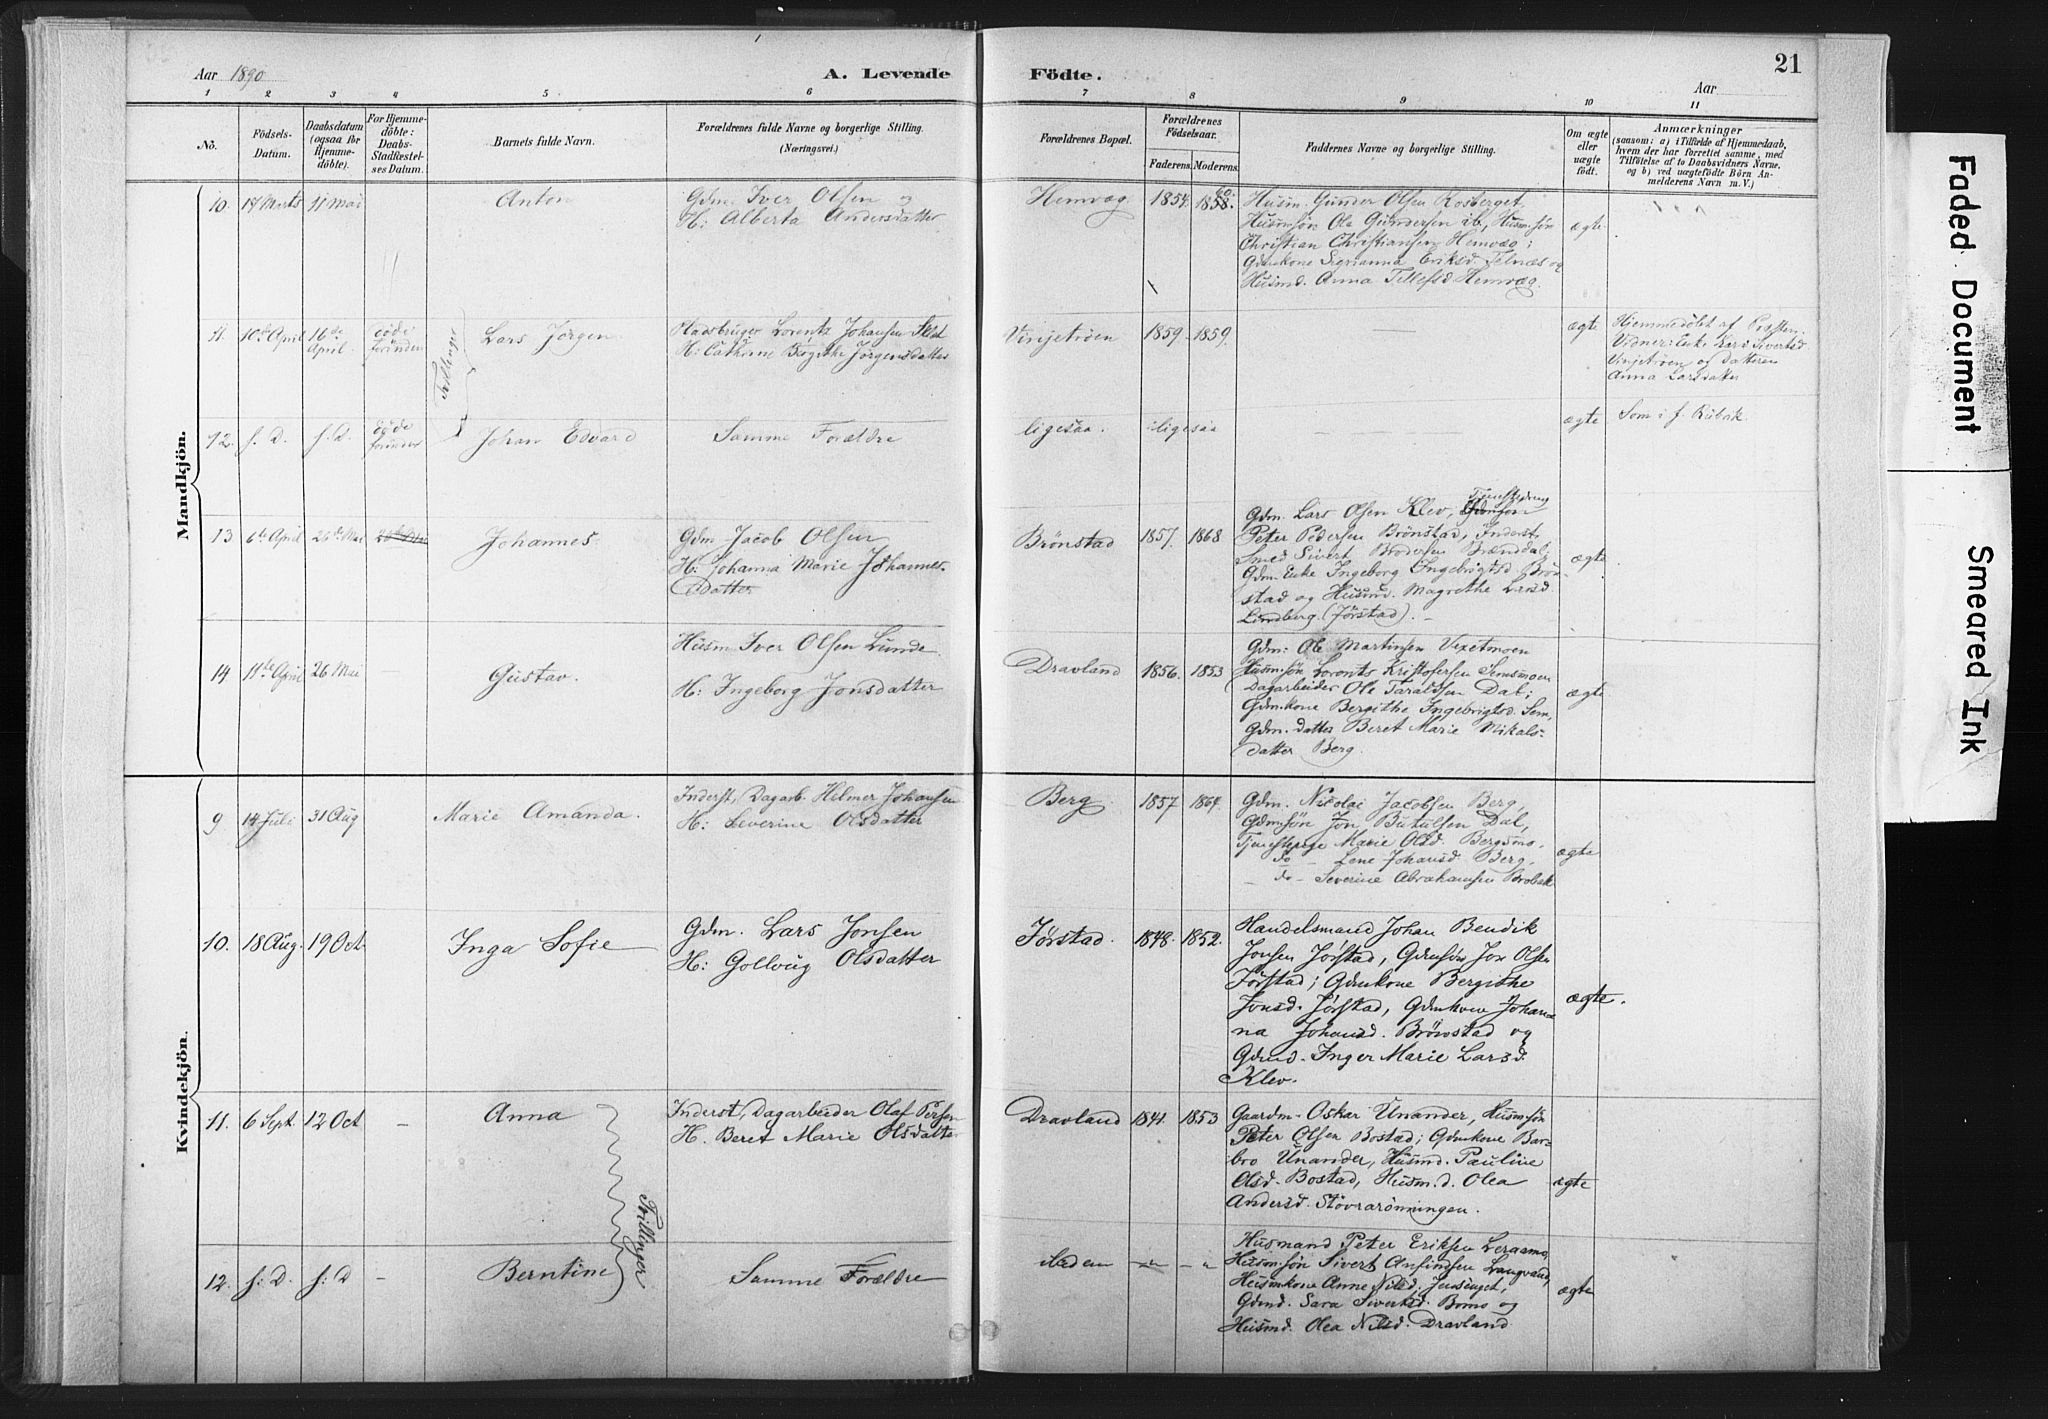 Aar 1890
A. Levende
Födte.
Aar
21
1 2 3 4 5 6 7 8 9 10 11
No.
Födsels-
Datum.
Daabsdatum
(ogsaa for
Hjemme-
döbte).
For Hjemme-
döbte:
Daabs-
Stadfestel-
ses Datum.
Barnets fulde Navn.
Forældrenes fulde Navne og borgerlige Stilling.
(Næringsvei.)
Forældrenes Bopæl.
Forældrenes
Födselsaar.
Faderens. Moderens.
Faddernes Navne og borgerlige Stilling.
Om ægte
eller
uægte
födt.
Anmærkninger
(saasom: a) i Tilfælde af Hjemmedaab,
hvem der har forrettet samme, med
Tilföielse af to Daabsvidners Navne,
og b) ved uægtefödte Börn An-
melderens Navn m. V.)
Mandkjön.
10. 17 Marts 11 Mai
Anton
Gdm. Iver Olsen og
H: Alberta Andersdatter
Hemvæg 1854. 1858. 60.
Husm. Gunder Olsen Kosberget,
Husmsön Ole Gundersen ib, Husmsön
Christian Christiansen Hemvæg;
Gdmkone Sigrianna Eriksd. Telnæs og
Husmd. Anna Tellefsd Hemvæg.
ægte
11. 10de April 16de April. døde forinden
Lars Jørgen
Tvillinger
Pladsbruger Lorentz Johansen
H: Cathrine Birgitte Jørgensdatter
Vinjetrøen 1859 1859.
ægte
Hjemmedøbt af Presten.
Vidner: Enke Kari Sivertsd
Vinjetrøen og Datteren
Anna Larsdatter
12. f. D. f. d. døde forinden
Johan Edvard
Samme Forældre
ligesaa. ligesaa
ægte
Som i f. Rubrik.
13 6te April 26de Mai
Johannes.
Gdm Jacob Olsen
H: Johanna Marie Johannes-
datter
Brönstad 1857. 1868
Gdm. Lars Olsen Klev, Tjenestedreng
Peter Pedersen Brönstad, Inderst,
Smed Sivert Brodersen Brænddal,
Gdm. Enke Ingeborg Ingebrigtsd Brön-
stad og Husmd. Magrethe Larsd.
Lindberg (Jörstad). -
ægte
14 11te April 26 Mai -
Gustav.
Husm Iver Olsen Lunde.
H: Ingeborg Jonsdatter
Dravland 1856. 1853
Gdm: Ole Martinsen Vexetmoen
Husmsön Lorents Kristofersen Semsmoen
Dagarbeider Ole Taraldsen Dal;
Gdmkone Bergithe Ingebrigtsd. Sem,
Gdm. datter Beret Marie Mikals-
datter Berg.
ægte
Kvindekjön.
9. 14 Juli 31 Aug
Marie Amanda.
Inderst, Dagarb. Hilmer Johansen
H: Severine Olsdatter
Berg 1857 1864.
Gdm. Nicolai Jacobsen Berg,
Gdmsön Jon Butulsen Dal,
Tjenestepige Marie Olsd. Bergsmo.
do - Lene Johansd. Berg.
- do - Severine Abrahamsen Brobak
ægte
10. 18 Aug. 19 Oct
Inga Sofie
Gdm. Lars Jonsen
H: Gollaug Olsdatter
Jørstad. 1848. 1852.
Handelsmand Johan Bendik
Jonsen Jørstad, Gdmsön Jon Olsen
Jørstad; Gdmkone Bergithe
Jonsd. Jørstad, Gdmkone Johan-
na Johansd. Brønstad og
Gdmd. Inger Marie Larsd.
Klev.
ægte.
11. 6 Sept. 12 Oct -
Anna
Tvillinger
Inderst, Dagarbeider Olaf Persen
H. Beret Marie Olsdatter
Dravland 1841. 1853
Gaardm. Oskar Unander, Husmsön
Peter Olsen Bostad; Gdmkone Bar-
bro Unander, Husmd. Pauline
Olsd. Bostad, Husm.d. Olea
Andersd. Stövrarönningen.
ægte
12. f: D. f: D -
Berntine
Samme Forældre
Husmand Peter Eriksen Leraamo,
Husmsön Sivert Anfindsen Langvand,
Husmkone Anne Nilsd. Jensenget,
Gdmd. Sara Sivertsd. Bomo og
Husmd. Olea Nilsd. Dravland
ægte
Faded Document
Smeared Ink